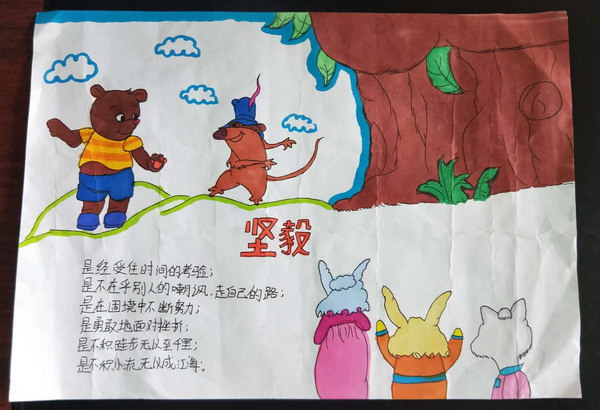 ⑥
坚毅
是经受住时间的考验；
是不在乎别人的嘲讽，走自己的路；
是在困境中不断努力；
是勇敢地面对挫折；
是不积跬步无以至千里；
是不积小流无以成江海。